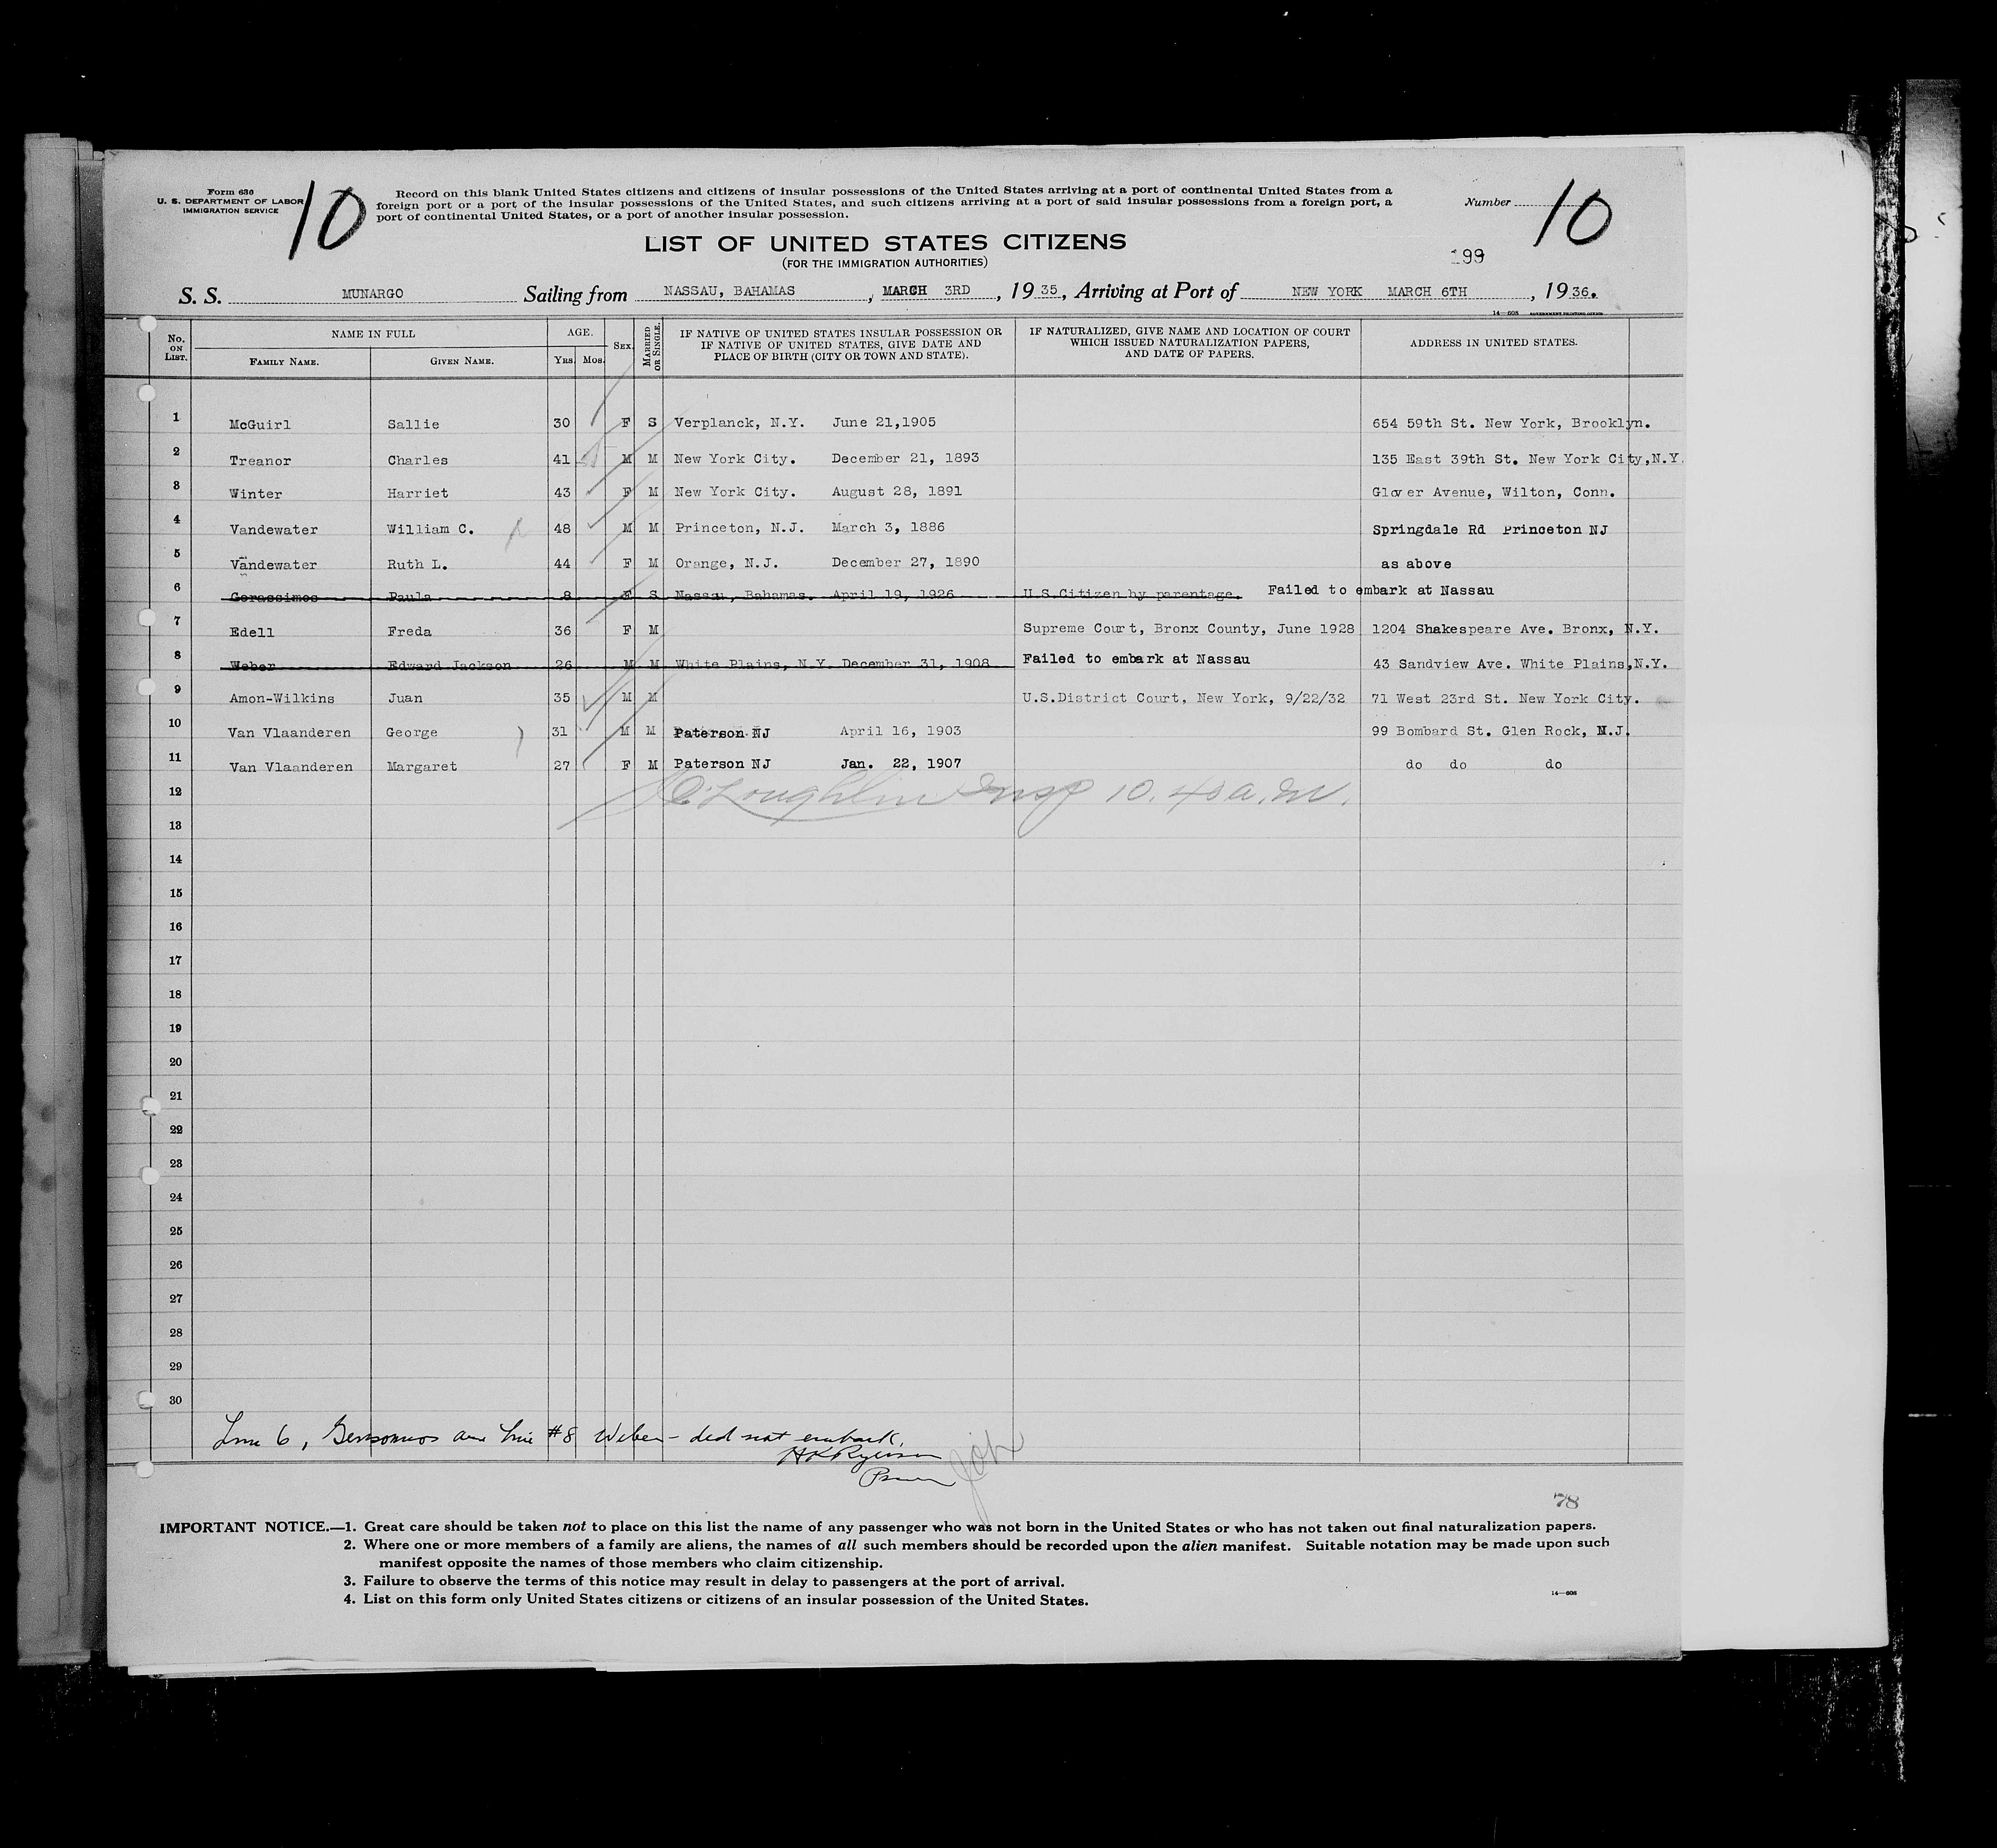 Form 630
U. S. DEPARTMENT OF LABOR
IMMIGRATION SERVICE
10
Record on this blank United States citizens and citizens of insular possessions of the United States arriving at a port of continental United States from a
foreign port or a port of the insular possessions of the United States, and such citizens arriving at a port of said insular possessions from a foreign port, a
port of continental United States, or a port of another insular possession.
Number 10
LIST OF UNITED STATES CITIZENS
(FOR THE IMMIGRATION AUTHORITIES)
199
S. S. MUNARGO Sailing from NASSAU, BAHAMAS, MARCH 3RD, 1935, Arriving at Port of NEW YORK MARCH 6TH, 1936.
14—608 GOVERNMENT PRINTING OFFICE
No. ON LIST. NAME IN FULL FAMILY NAME. GIVEN NAME. AGE. Yrs. Mos. SEX. MARRIED OR SINGLE. IF NATIVE OF UNITED STATES INSULAR POSSESSION OR IF NATIVE OF UNITED STATES, GIVE DATE AND PLACE OF BIRTH (CITY OR TOWN AND STATE). IF NATURALIZED, GIVE NAME AND LOCATION OF COURT WHICH ISSUED NATURALIZATION PAPERS, AND DATE OF PAPERS. ADDRESS IN UNITED STATES.
1 McGuirl Sallie 30 F S Verplanck, N.Y. June 21,1905 654 59th St. New York, Brooklyn.
2 Treanor Charles 41 M M New York City. December 21, 1893 135 East 39th St. New York City,N.Y.
3 Winter Harriet 43 F M New York City. August 28, 1891 Glover Avenue, Wilton, Conn.
4 Vandewater William C. 48 M M Princeton, N.J. March 3, 1886 Springdale Rd Princeton NJ
5 Vandewater Ruth L. 44 F M Orange, N.J. December 27, 1890 as above
6 Gerassimos Paula 8 F S Nassau, Bahamas. April 19, 1926 U.S.Citizen by parentage. Failed to embark at Nassau
7 Edell Freda 36 F M Supreme Court, Bronx County, June 1928 1204 Shakespeare Ave. Bronx, N.Y.
8 Weber Edward Jackson 26 M M White Plains, N.Y. December 31, 1908 Failed to embark at Nassau 43 Sandview Ave. White Plains,N.Y.
9 Amon-Wilkins Juan 35 M M U.S.District Court, New York, 9/22/32 71 West 23rd St. New York City.
10 Van Vlaanderen George 31 M M Paterson NJ April 16, 1903 99 Bombard St. Glen Rock, N.J.
11 Van Vlaanderen Margaret 27 F M Paterson NJ Jan. 22, 1907 do do do
12 O'Loughlin Insp 10.40 a.m.
13
14
15
16
17
18
19
20
21
22
23
24
25
26
27
28
29
30
Line 6, Gerssomos and Line #8 Weber - did not embark.
78
IMPORTANT NOTICE.—1. Great care should be taken not to place on this list the name of any passenger who was not born in the United States or who has not taken out final naturalization papers.
2. Where one or more members of a family are aliens, the names of all such members should be recorded upon the alien manifest. Suitable notation may be made upon such
manifest opposite the names of those members who claim citizenship.
3. Failure to observe the terms of this notice may result in delay to passengers at the port of arrival.
4. List on this form only United States citizens or citizens of an insular possession of the United States.
14—608